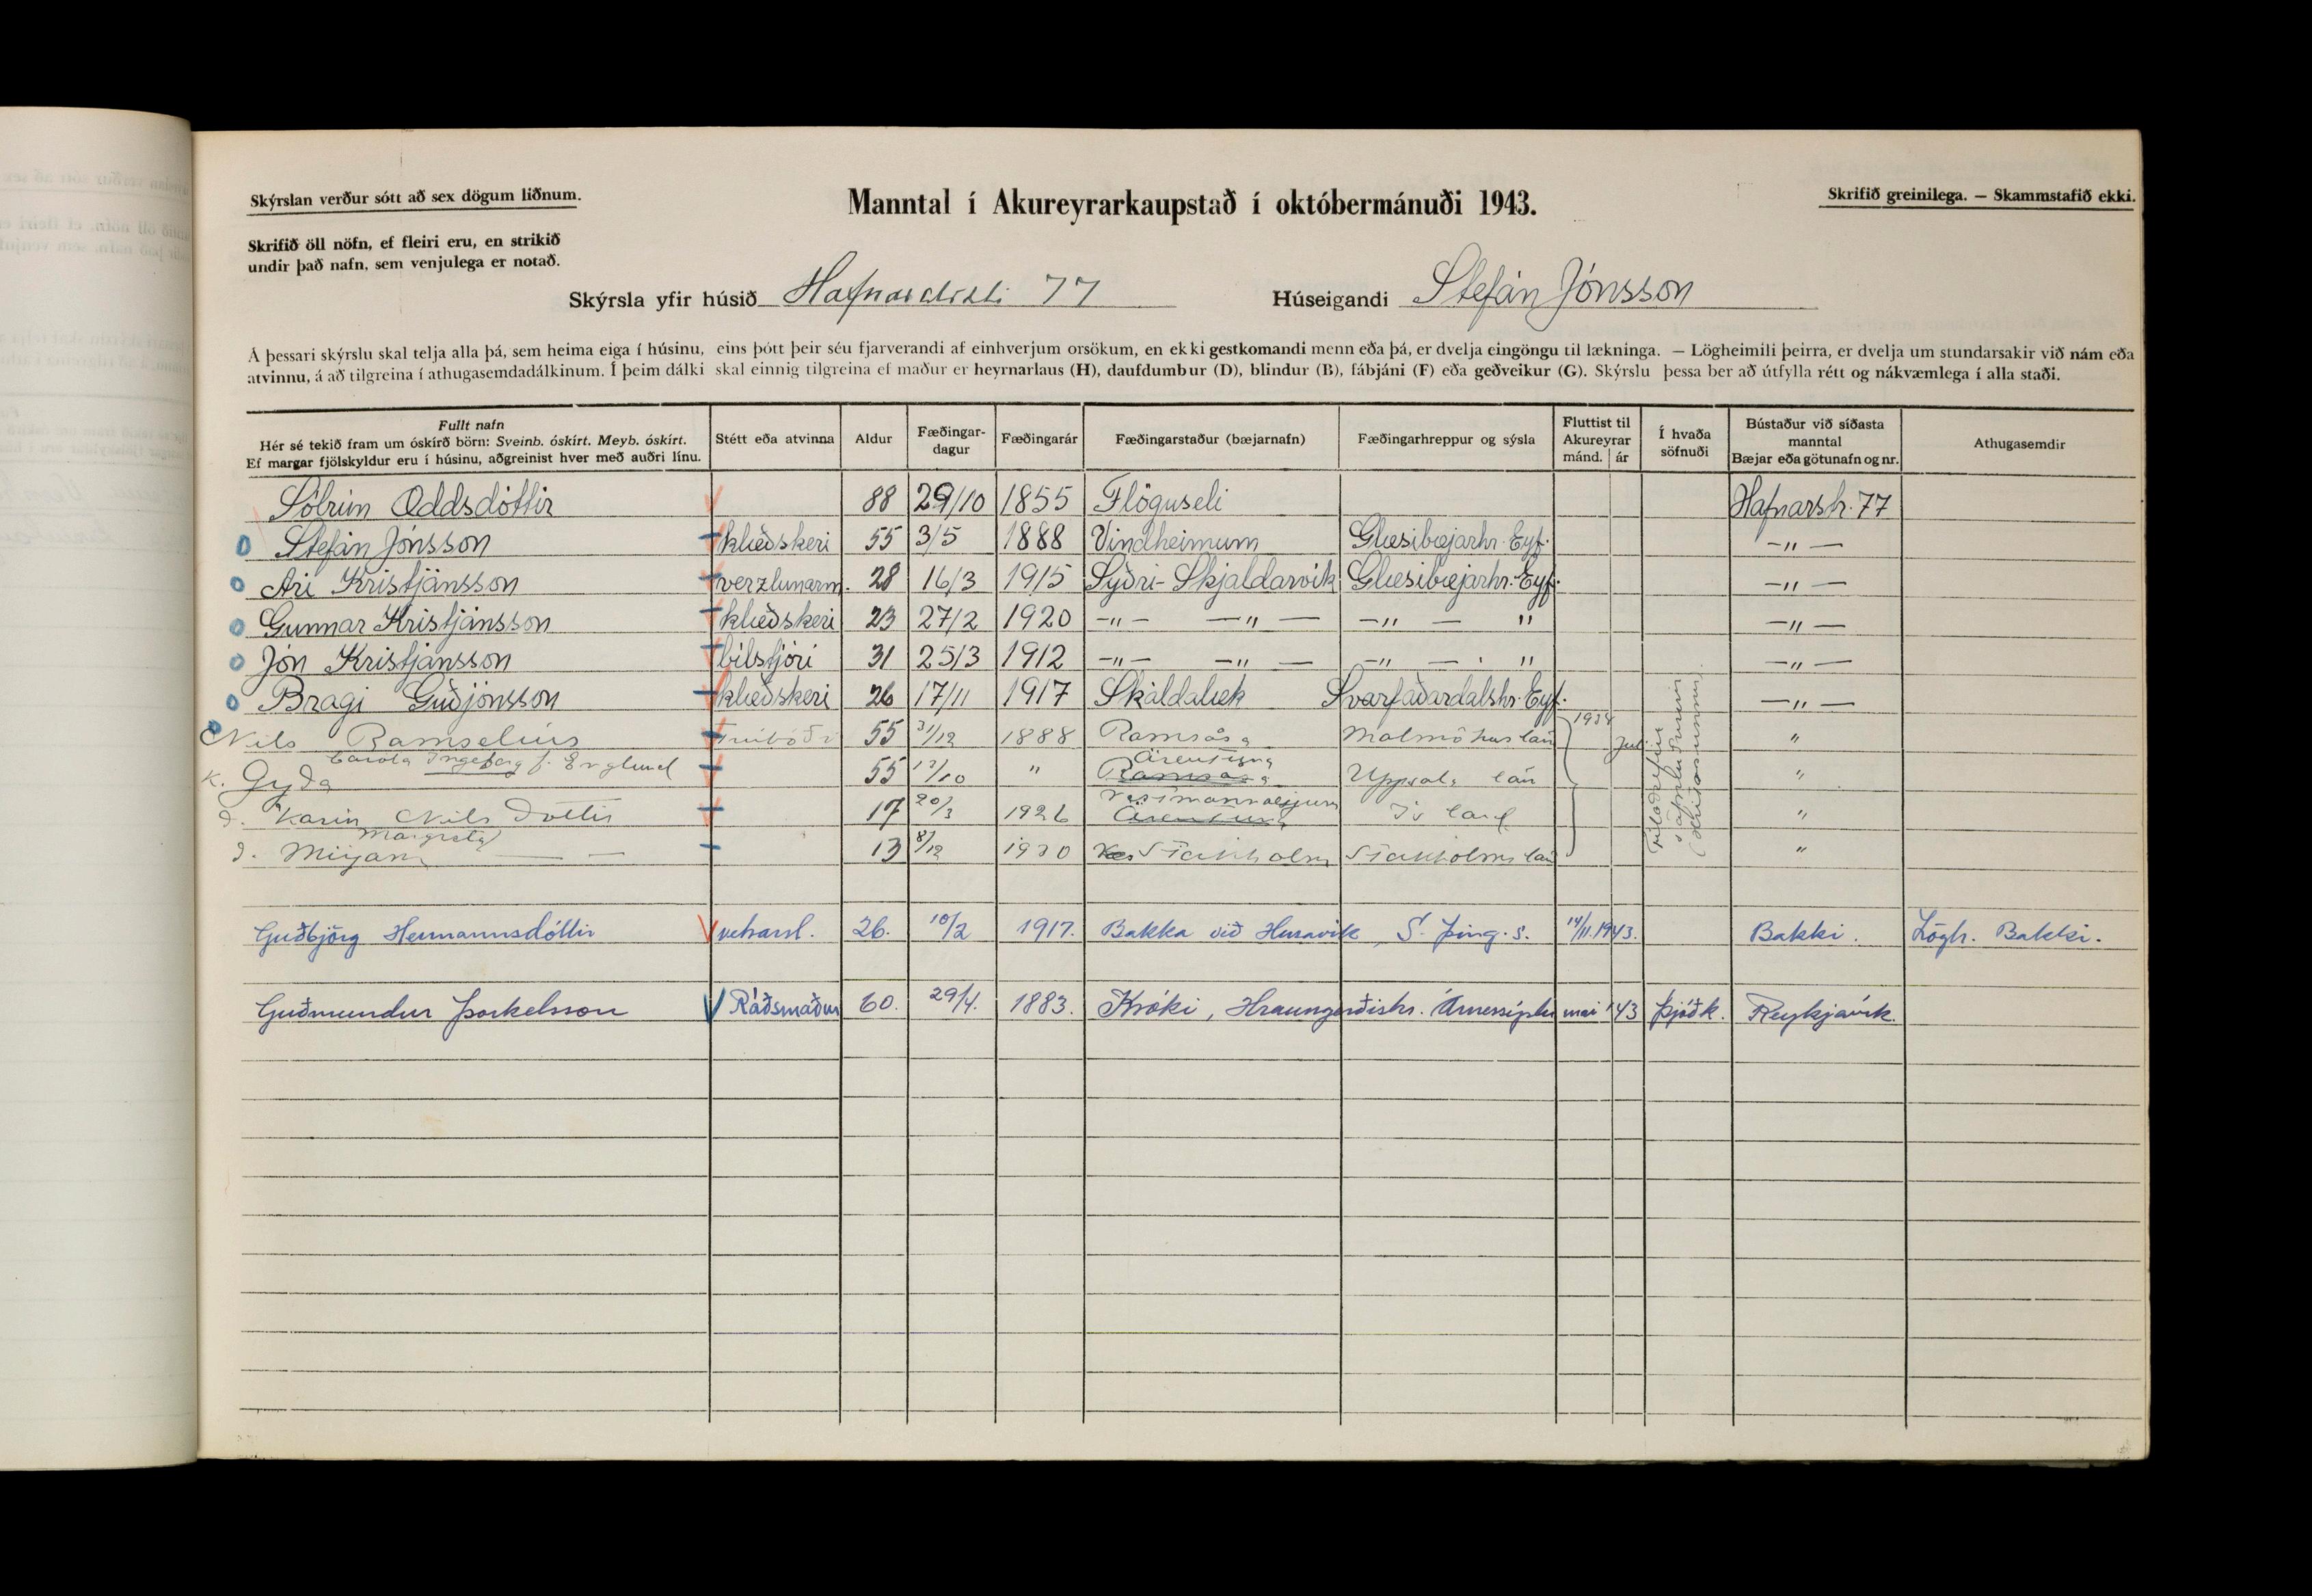 Skýrslan verður sótt að sex dögum liðnum.
Manntal í Akureyrarkaupstað í októbermánuði 1943.
Skrifið greinilega. — Skammstafið ekki.
Skrifið öll nöfn, ef fleiri eru, en strikið
undir það nafn, sem venjulega er notað.
Skýrsla yfir húsið Hafnarstræti 77 Húseigandi Stefán Jónsson
Á þessari skýrslu skal telja alla þá, sem heima eiga í húsinu, eins þótt þeir séu fjarverandi af einhverjum orsökum, en ekki gestkomandi menn eða þá, er dvelja eingöngu til lækninga. — Lögheimili þeirra, er dvelja um stundarsakir við nám eða
atvinnu, á að tilgreina í athugasemdadálkinum. Í þeim dálki skal einnig tilgreina ef maður er heyrnarlaus (H), daufdumbur (D), blindur (B), fábjáni (F) eða geðveikur (G). Skýrslu þessa ber að útfylla rétt og nákvæmlega í alla staði.
Fullt nafn
Hér sé tekið fram um óskírð börn: Sveinb. óskírt. Meyb. óskírt.
Ef margar fjölskyldur eru í húsinu, aðgreinist hver með auðri línu.
Stétt eða atvinna
Aldur
Fæðingar-
dagur
Fæðingarár
Fæðingarstaður (bæjarnafn)
Fæðingarhreppur og sýsla
Fluttist til
Akureyrar
mánd. ár
Í hvaða
söfnuði
Bústaður við síðasta
manntal
Bæjar eða götunafn og nr.
Athugasemdir
Sólrún Oddsdóttir 88 29/10 1855 Flöguseli Hafnarstr. 77
Stefán Jónsson klæðskeri 55 3/5 1888 Vindheimum Glæsibæjarhr. Eyf. —"—
Ari Kristjánsson verzlunarm. 28 16/3 1915 Syðri-Skjaldarvík Glæsibæjarhr. Eyf. —"—
Gunnar Kristjánsson klæðskeri 23 27/2 1920 —"— —"— —"— " —"—
Jón Kristjánsson bílstjóri 31 25/3 1912 —"— —"— —"— " —"—
Bragi Guðjónsson klæðskeri 26 17/11 1917 Skáldalæk Svarfaðardalshr. Eyf. —"—
Nils Ramselius Trúboði 55 31/12 1888 Ramsåsa Malmöhus län 1934 Júlí "
Carola Ingeborg f. Englund Ärentuna
k. Gyda 55 /10 " Ramsåsa Uppsala län "
Vestmannaeyjum
d. Karin Nils Dóttir 17 20/3 1926 Ärentuna Ísland "
Margreta
d. Mirjam — — 13 8/12 1930 Stockholm Stockholms län "
Fíladelfíu
söfnuðinum
Guðbjörg Hermannsdóttir vetrarst. 26. 10/2 1917. Bakka við Húsavík, S. Þing. s. 14/11. 1943. Bakki. Lögh. Bakki.
Guðmundur Þorkelsson Ráðsmaður 60. 29/4. 1883. Króki, Hraungerðishr. Árnessýslu maí '43 Þjóðk. Reykjavík.